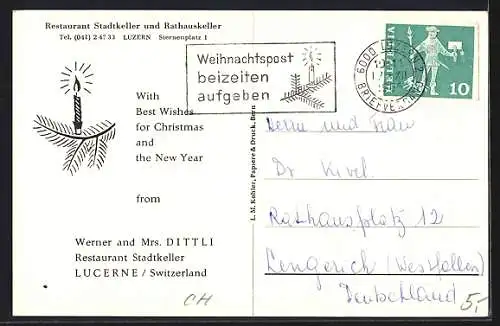 Restaurant Stadtkeller und Rathauskeller
Tel. (041) 2 47 33 LUZERN Sternenplatz 1
Weihnachtspost
beizeiten
aufgeben
6000 LUZERN
BRIEFVERSAND
HELVETIA
10
With
Best Wishes
for Christmas
and
the New Year
from
Werner and Mrs. DITTLI
Restaurant Stadtkeller
LUCERNE / Switzerland
CH
L. M. Kohler, Papiere & Druck, Bern
Herrn und Frau
Dr Kivel
Rathausplatz 12
Lengerich (Westfalen)
Deutschland
5,-